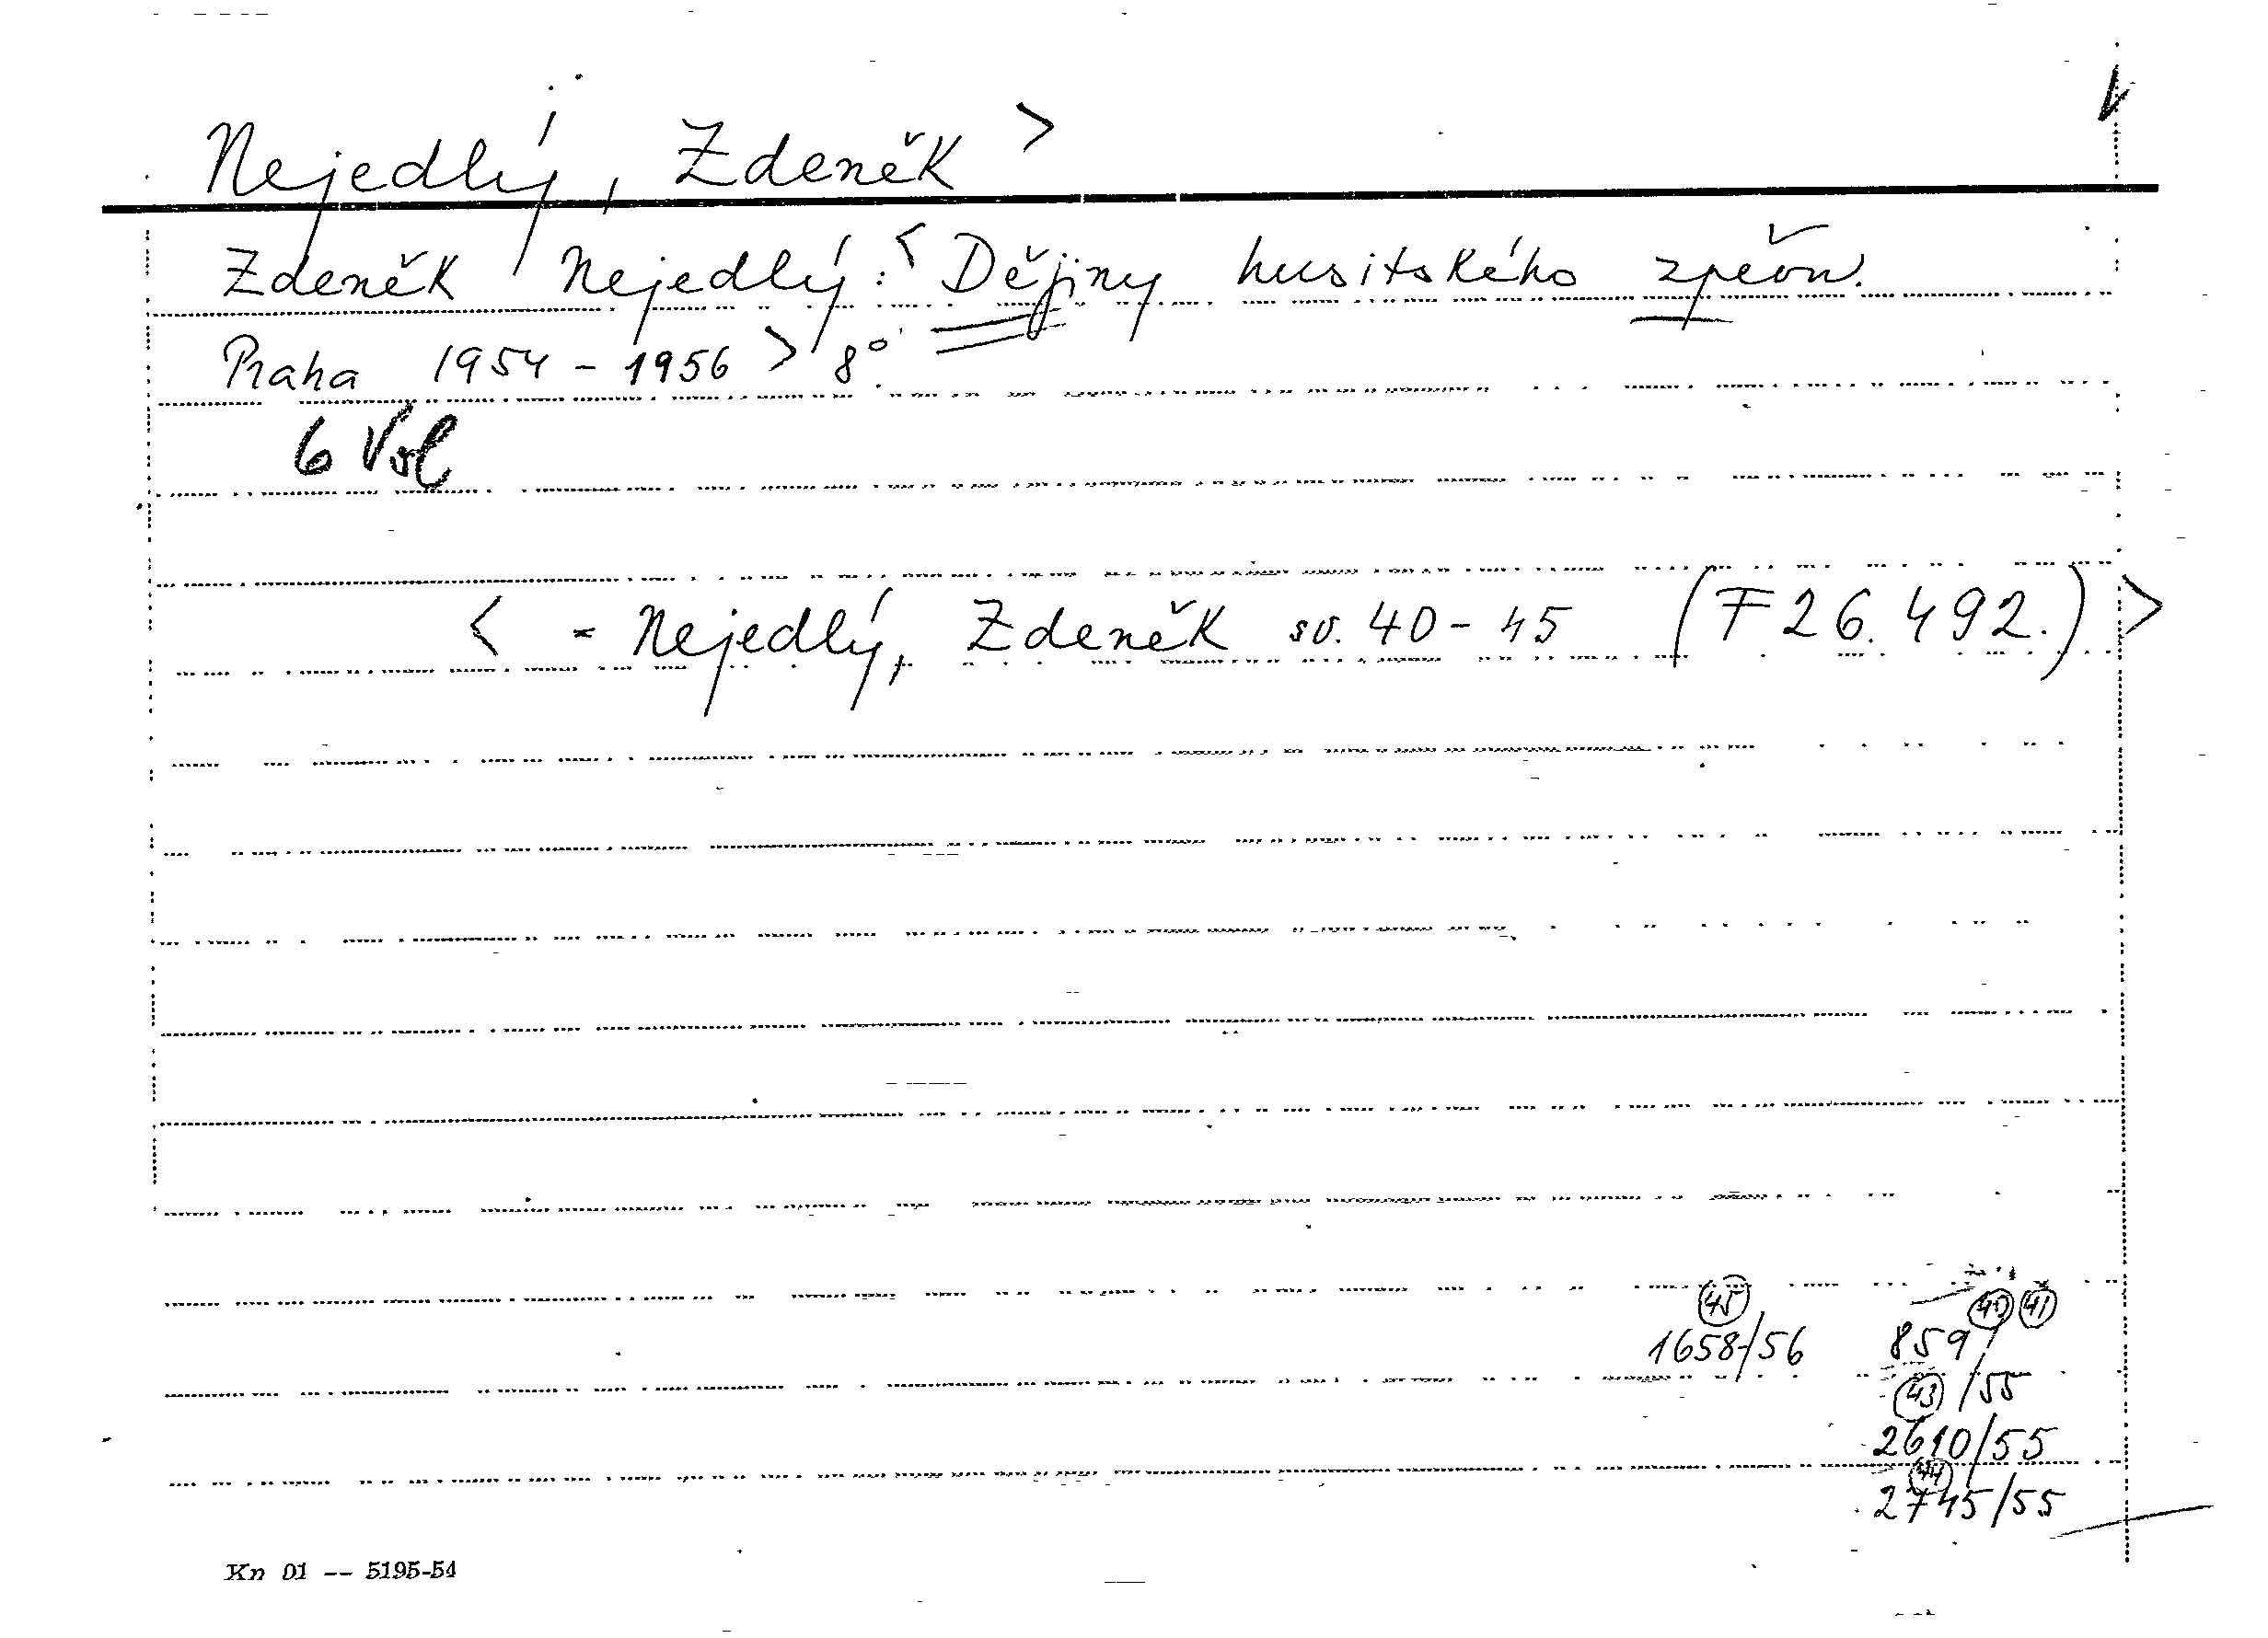 Nejedlý, Zdeněk >
Zdeněk Nejedlý: < Dějiny husitského zpěvu.
Praha 1954 - 1956 > 8°
6 Vol
< = Nejedlý, Zdeněk sv. 40 - 45 (F 26.492.) >
45 40 41
1658/56 859/
43 /55
2610/55
44
2745/55
Kn 01 -- 5195-54